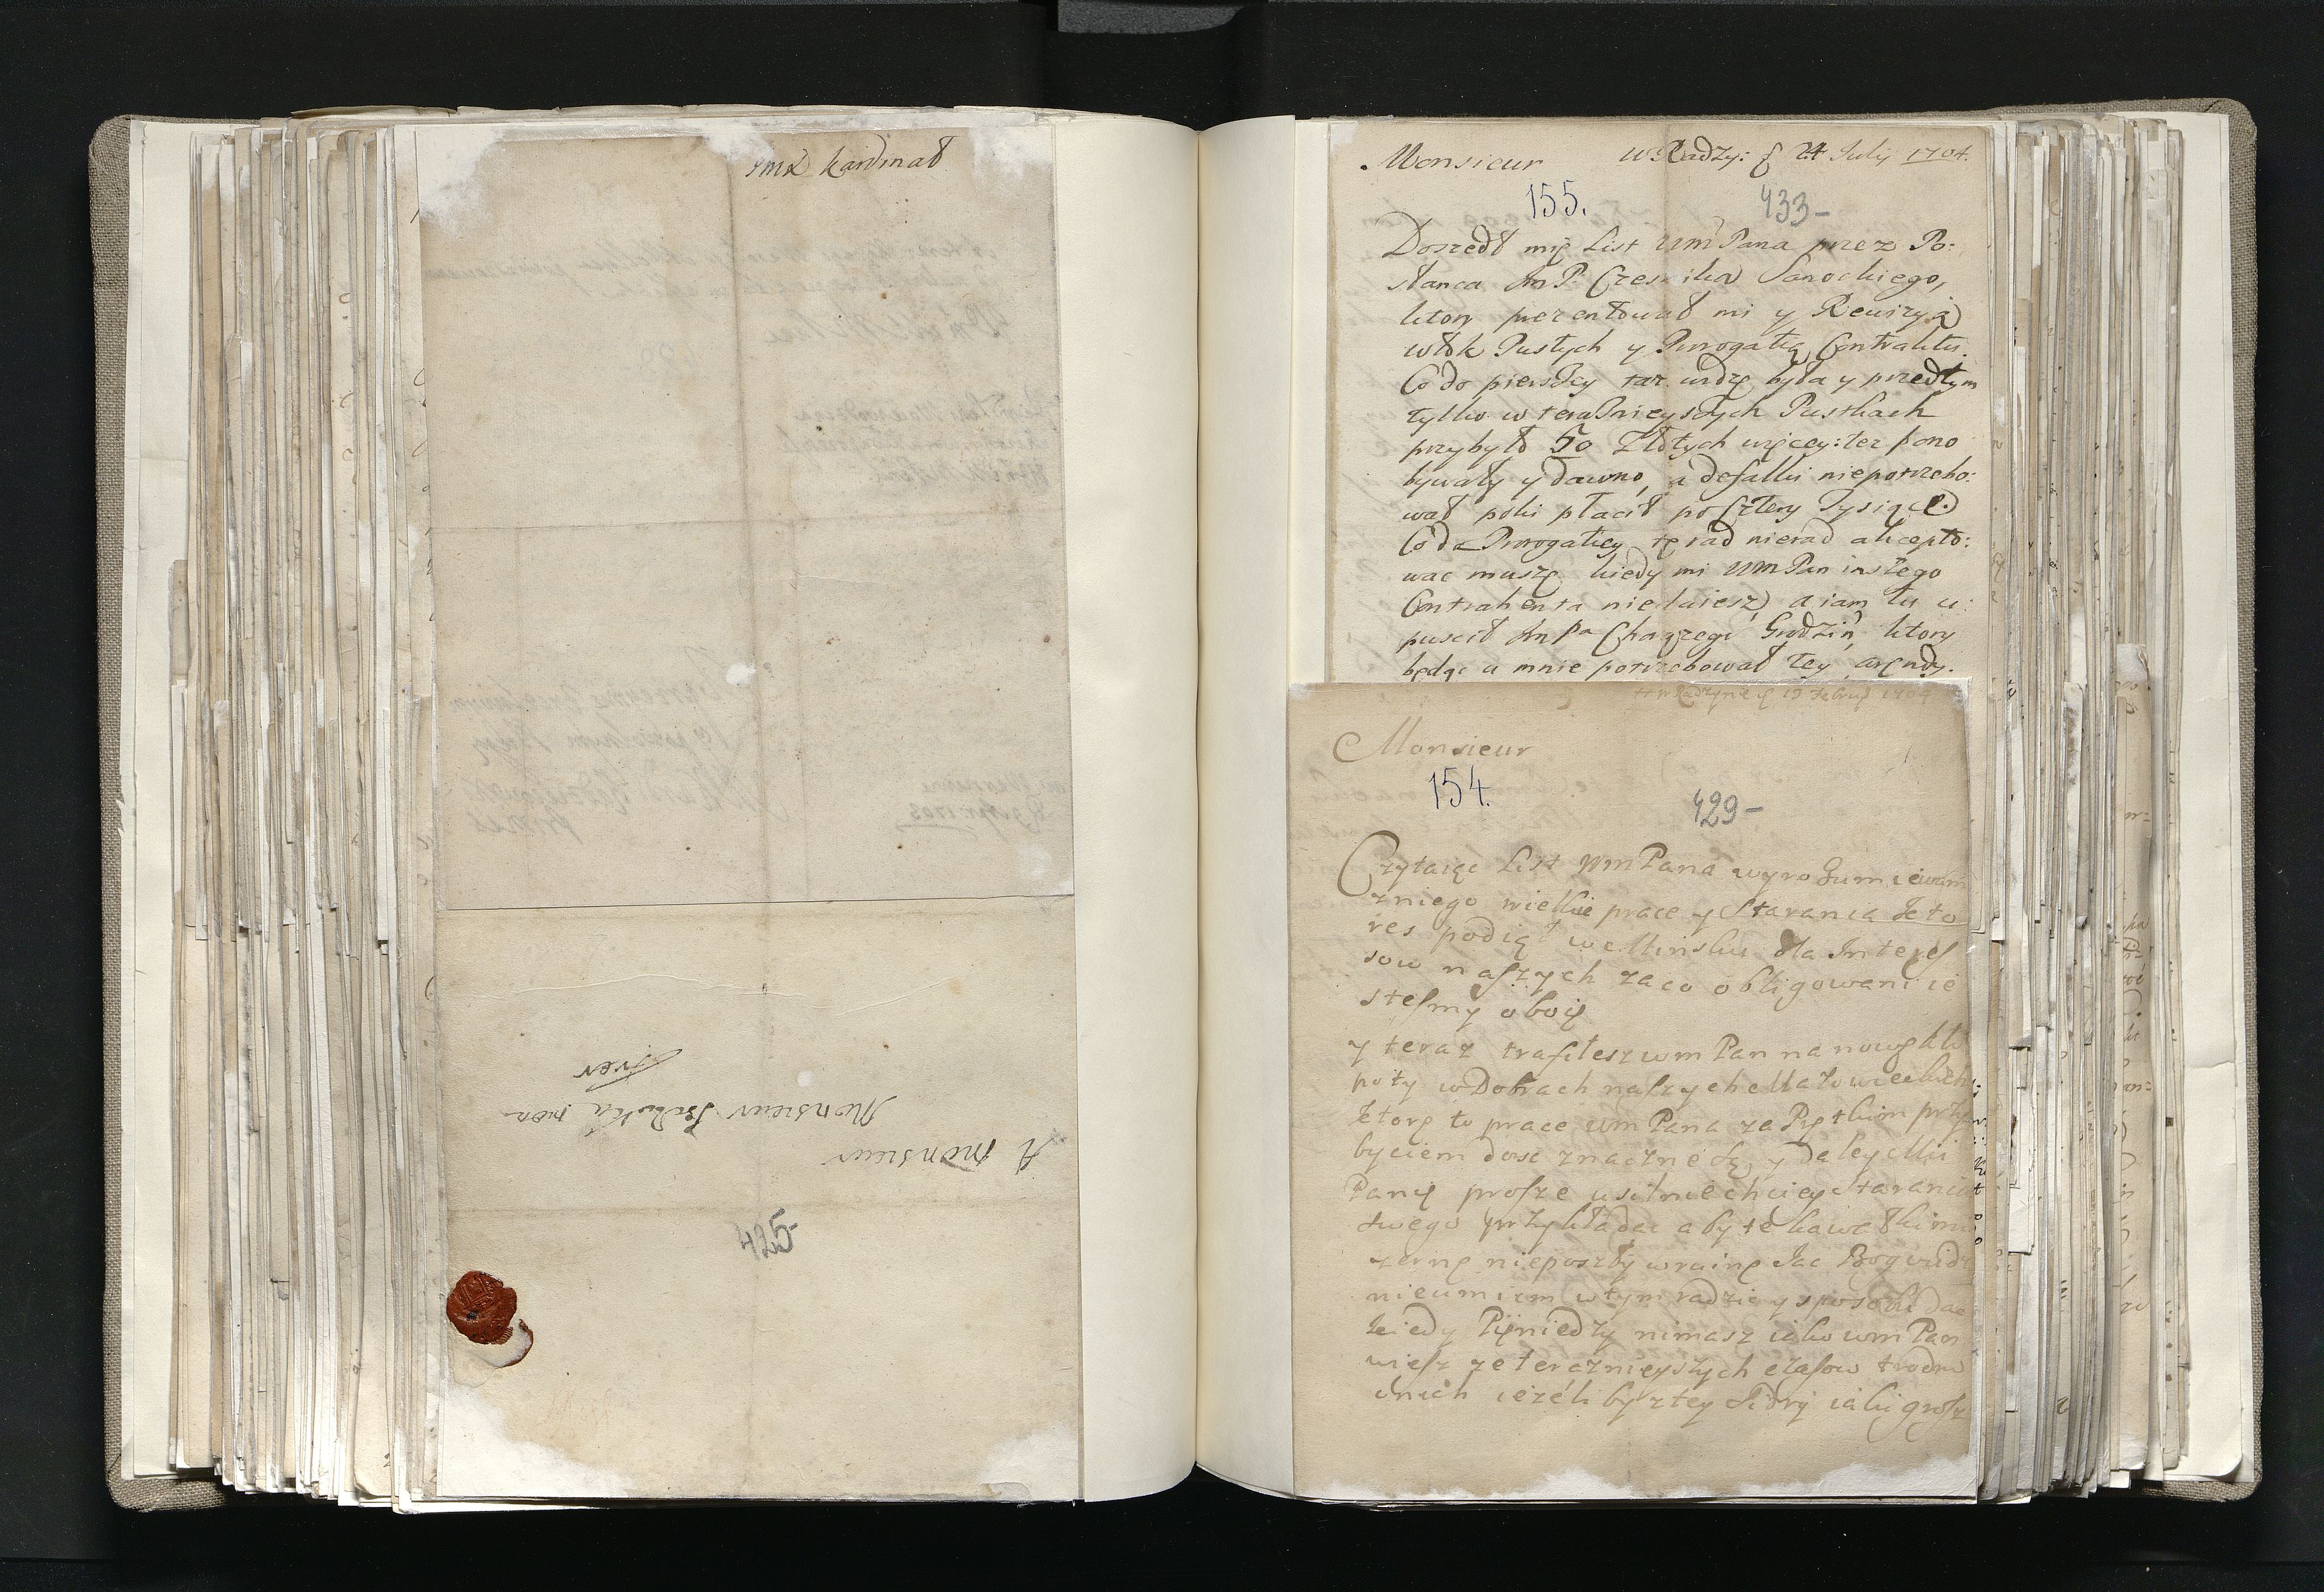 JMX Kardinał
A Monsieur
Monsieur mon
frer
425
Monsieur w Radzy: d 24 Julij 1704.
155. 433-
Doszedł mię List WM Pana przez Po:
słanca Jm P. Czesnika Sanockiego,
ktory prezentował mi y Rewizyą
włok Pustych y Prorogatią Contraktu.
Co do pierszey taż widzę była y przedtym
tylko w teraznieyszych Pustkach
przybyło 50 Złotych więcey: tez pono
bywały y dawno, a defalki niepotrzebo:
wał poki płacił po Cztery Tysiące
Co do Prorogatiey tę rad nierad akcepto:
wac muszę kiedy mi WM Pan inszego
Contrahenta niedaiesz, a iam tu u:
puscił Jm Pa Grodzin, ktory
będąc u mnie potrzebował tey arendy.
w Radzynie d 19 Febru 1704
Monsieur
154. 429-
Czytaiąc List WM Pana wyrozumiewam
zniego wielkie prace y Starania kto
res podiął w Minsku dla Interes
sow naszych zaco obligowani ie
stesmy oboie
y teraz trafiłesz wm Pan na nowe kło
poty w Dobrach naszych Mazowieckich
ktore to prace wm Pana za Prętkim przy
byciem dosc znaczne są, y daley Mci
Panie prosze usilnie chciey Starania
swego przykładac aby te kawałki mi
zerne nieposzły wruinę Jac Bog widz
nieumiem wtym radzic y sposobu dac
kiedy Pieniedzy nimasz iako wm Pan
wiesz ze teraznieyszych czasow trodno
onich ieżeli by ztey Sidry iaki grosz